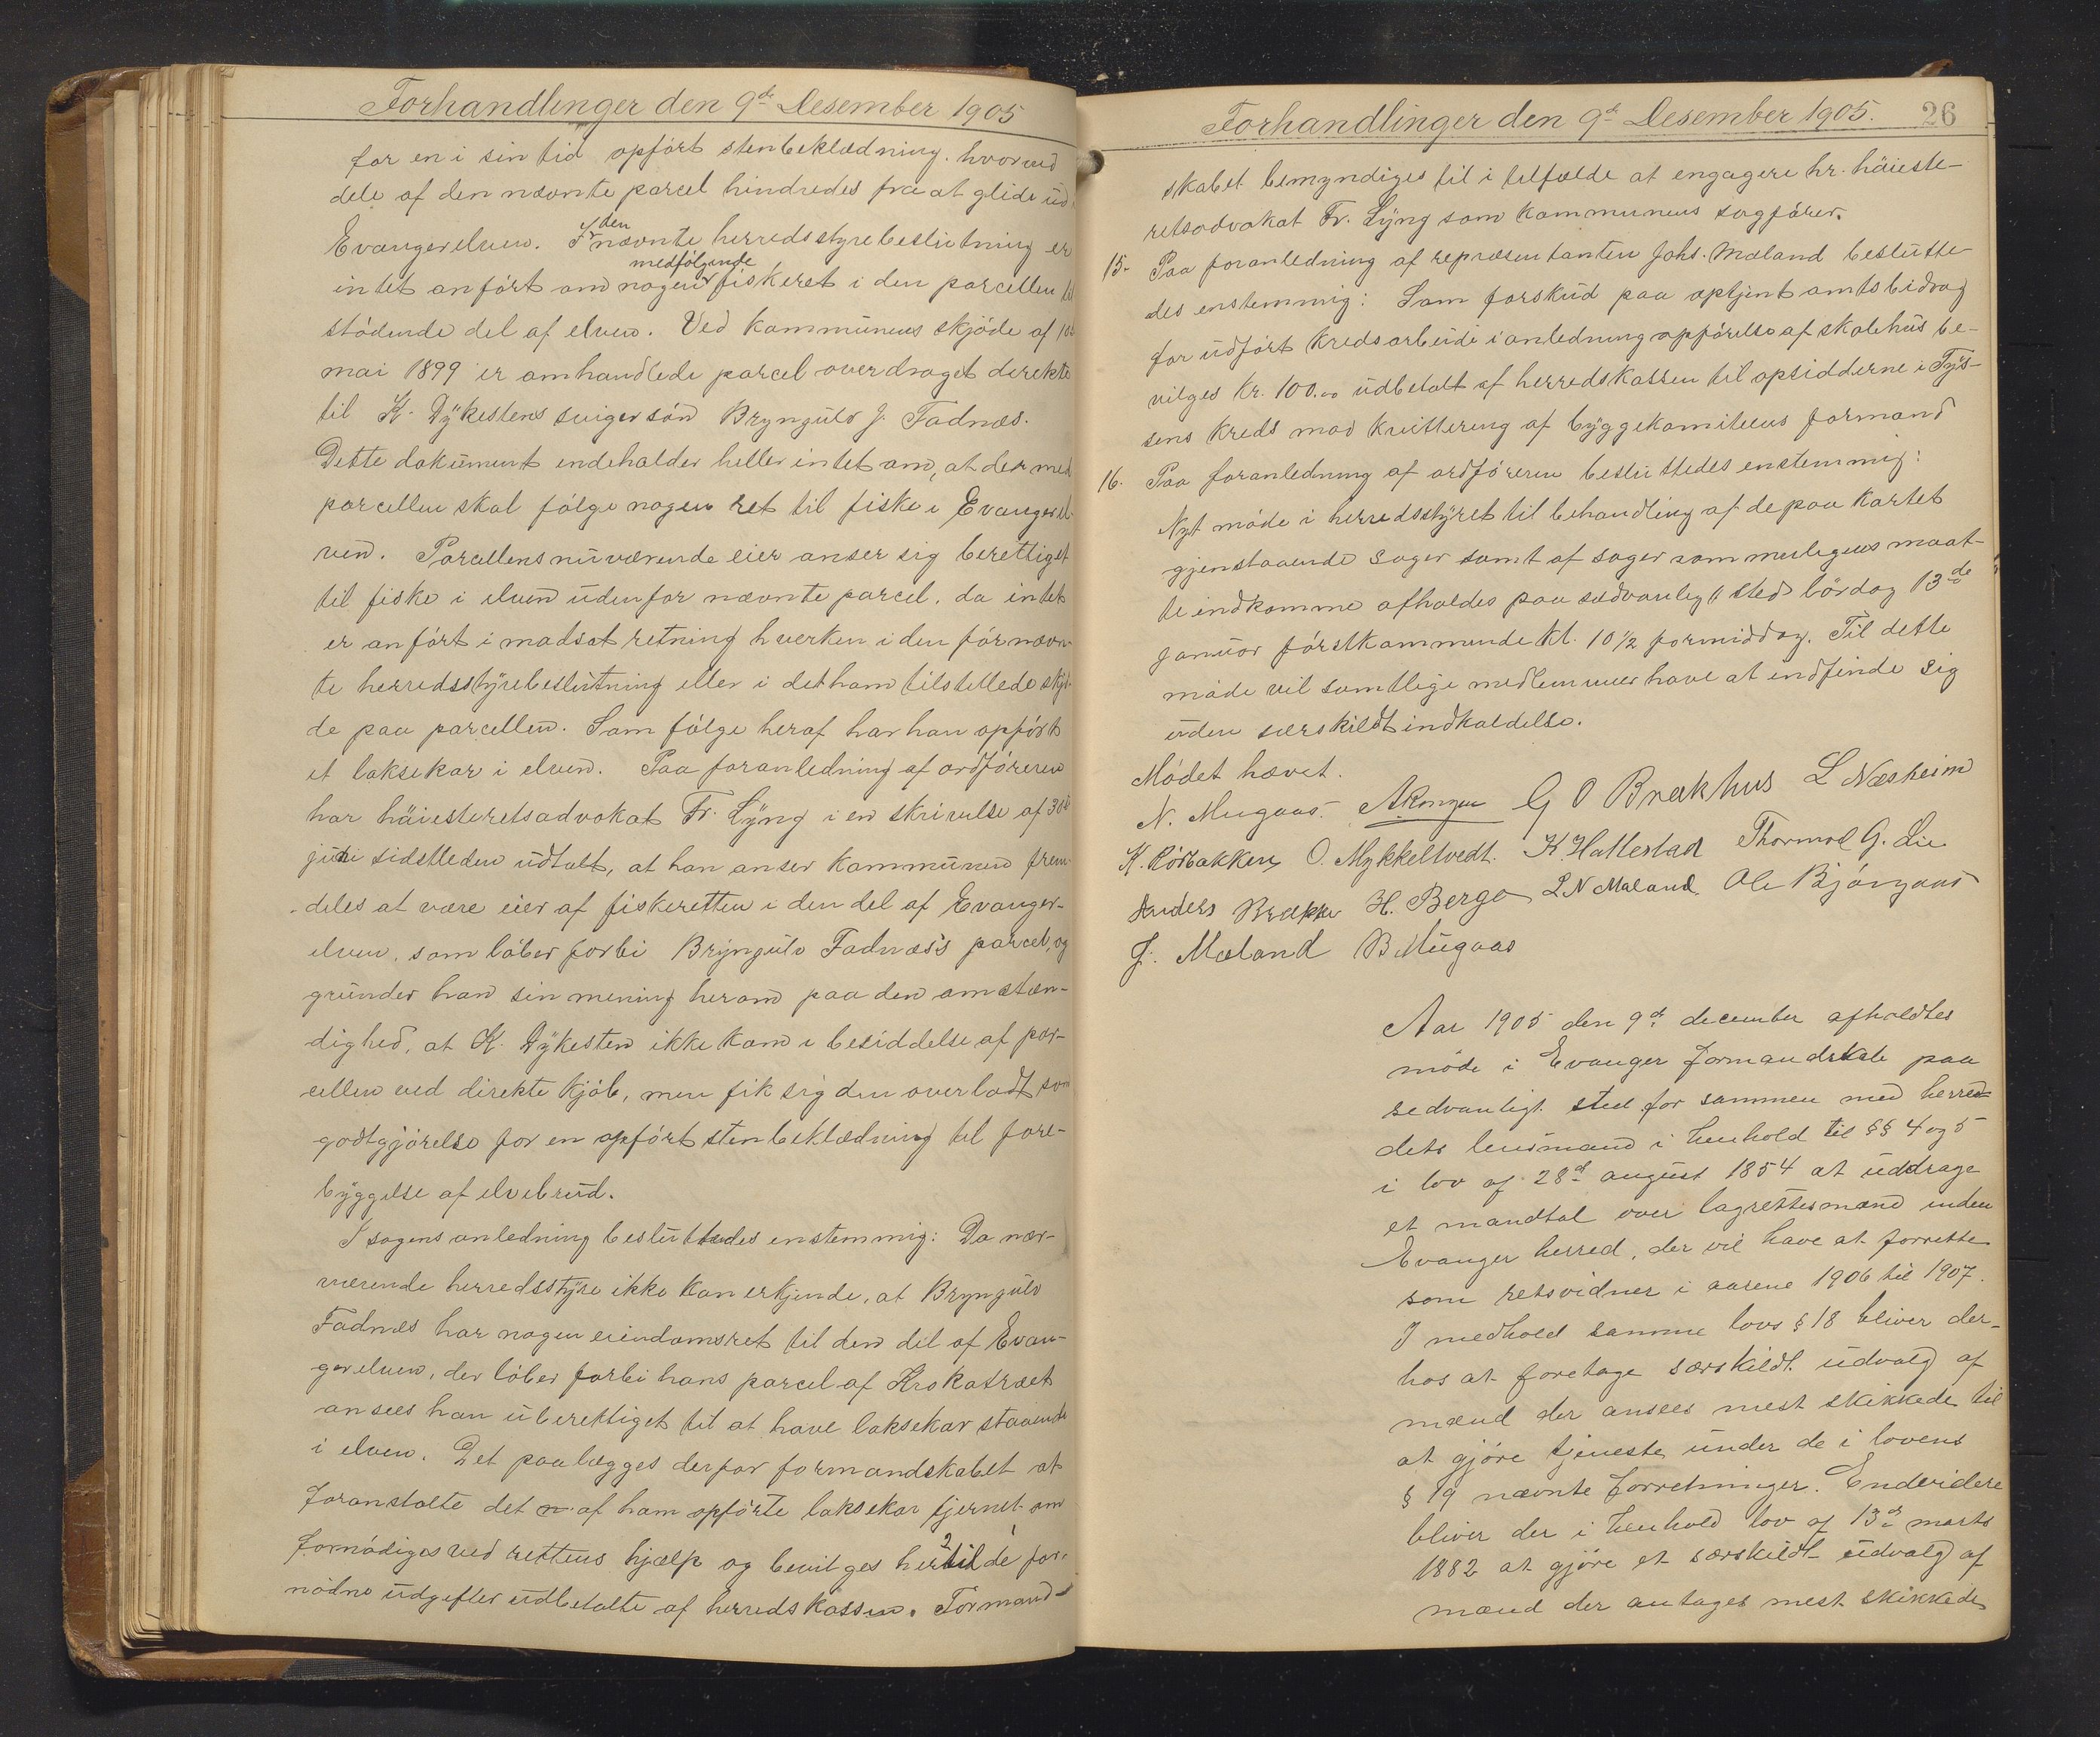 Forhandlinger den 9de Desember 1905
for en i sin tid opført stenbeklædning. hvorved
dele af den nævnte parcel hindredes fra at glide ud i
Evangerelven. I den nævnte herredsstyrebeslutning er
intet anført om nogen medfølgende fiskeret i den parcellen til
stødende del af elven. Ved kommunens skjøde af 10de
mai 1899 er omhandlede parcel overdraget direkte
til K. Dykestens svigersøn Bryngulv J. Fadnæs.
Dette dokument indeholder heller intet om, at der med
parcellen skal følge nogen ret til fiske i Evangerel-
ven. Parcellens nuværende eier anser sig berettiget
til fiske i elven udenfor nævnte parcel, da intet
er anført i modsat retning hverken i den førnævn-
te herredsstyrebeslutning eller i det ham tilstillede skjø-
de paa parcellen. Som følge heraf har han opført
et laksekar i elven. Paa foranledning af ordføreren
har høiesteretsadvokat Fr. Lyng i en skrivelse af 30te
juni sidstleden udtalt, at han anser kommunen frem-
deles at være eier af fiskeretten i den del af Evanger-
elven, som løber forbi Bryngulv Fadnæs's parcel, og
grunder han sin mening herom paa den omstæn-
dighed, at K. Dykesten ikke kom i besiddelse af par-
cellen ved direkte kjøb, men fik sig den overladt som
godtgjørelse for en opført stenbeklædning til fore-
byggelse af elvebrud.
I sagens anledning besluttedes enstemmig: Da nær-
værende herredsstyre ikke kan erkjende, at Bryngulv
Fadnæs har nogen eiendomsret til den del af Evan-
gerelven, der løber forbi hans parcel af Krokatræet
ansees han uberettiget til at have laksekar staaende
i elven. Det paalægges derfor formandskabet at
foranstalte det af ham opførte laksekar fjernet om
fornødiges ved rettens hjælp og bevilges hertil de for-
nødne udgifter udbetalte af herredskassen. Formand-
Forhandlinger den 9de Desember 1905. 26
skabet bemyndiges til i tilfælde at engagere hr. høieste-
retsadvokat Fr. Lyng som kommunens sagfører.
15. Paa foranledning af repræsentanten Johs. Mæland beslutte-
des enstemmig: Som forskud paa optjent amtsbidrag
for udført kredsarbeide i anledning opførelse af skolehus be-
vilges kr. 100.00 udbetalt af herredskassen til opsidderne i Tys-
sens kreds mod kvittering af byggekomiteens formand
16. Paa foranledning af ordføreren besluttedes enstemmig:
Nyt møde i herredsstyret til behandling af de paa kartet
gjenstaaende sager samt af sager som muligens maat-
te indkomme afholdes paa sædvanlig sted lørdag 13de
januar førstkommende kl. 10 1/2 formiddag. Til dette
møde vil samtlige medlemmer have at indfinde sig
uden særskildt indkaldelse.
Mødet hævet.
N. Mugaas. G O Brækhus L Næsheim
K. Rörbakken O. Mykkeltvedt. K. Hallestad Thormod G. Lie
Anders Brække H. Berge L N Mæland Ole Bjørgaas
J. Mæland B Mugaas
Aar 1905 den 9de december afholdtes
møde i Evanger formandskab paa
sedvanligt sted for sammen med herre-
dets lensmand i henhold til §§ 4 og 5
i lov af 28de august 1854 at uddrage
et mandtal over lagrettesmænd inden
Evanger herred, der vil have at forrette
som retsvidner i aarene 1906 til 1907.
I medhold samme lovs § 18 bliver der-
hos at foretage særskildt udvalg af
mænd der ansees mest skikkede til
at gjøre tjeneste under de i lovens
§ 19 nævnte forretninger. Endvidere
bliver der i henhold lov af 13de marts
1882 at gjøre et særskildt udvalg af
mænd der antages mest skikkede